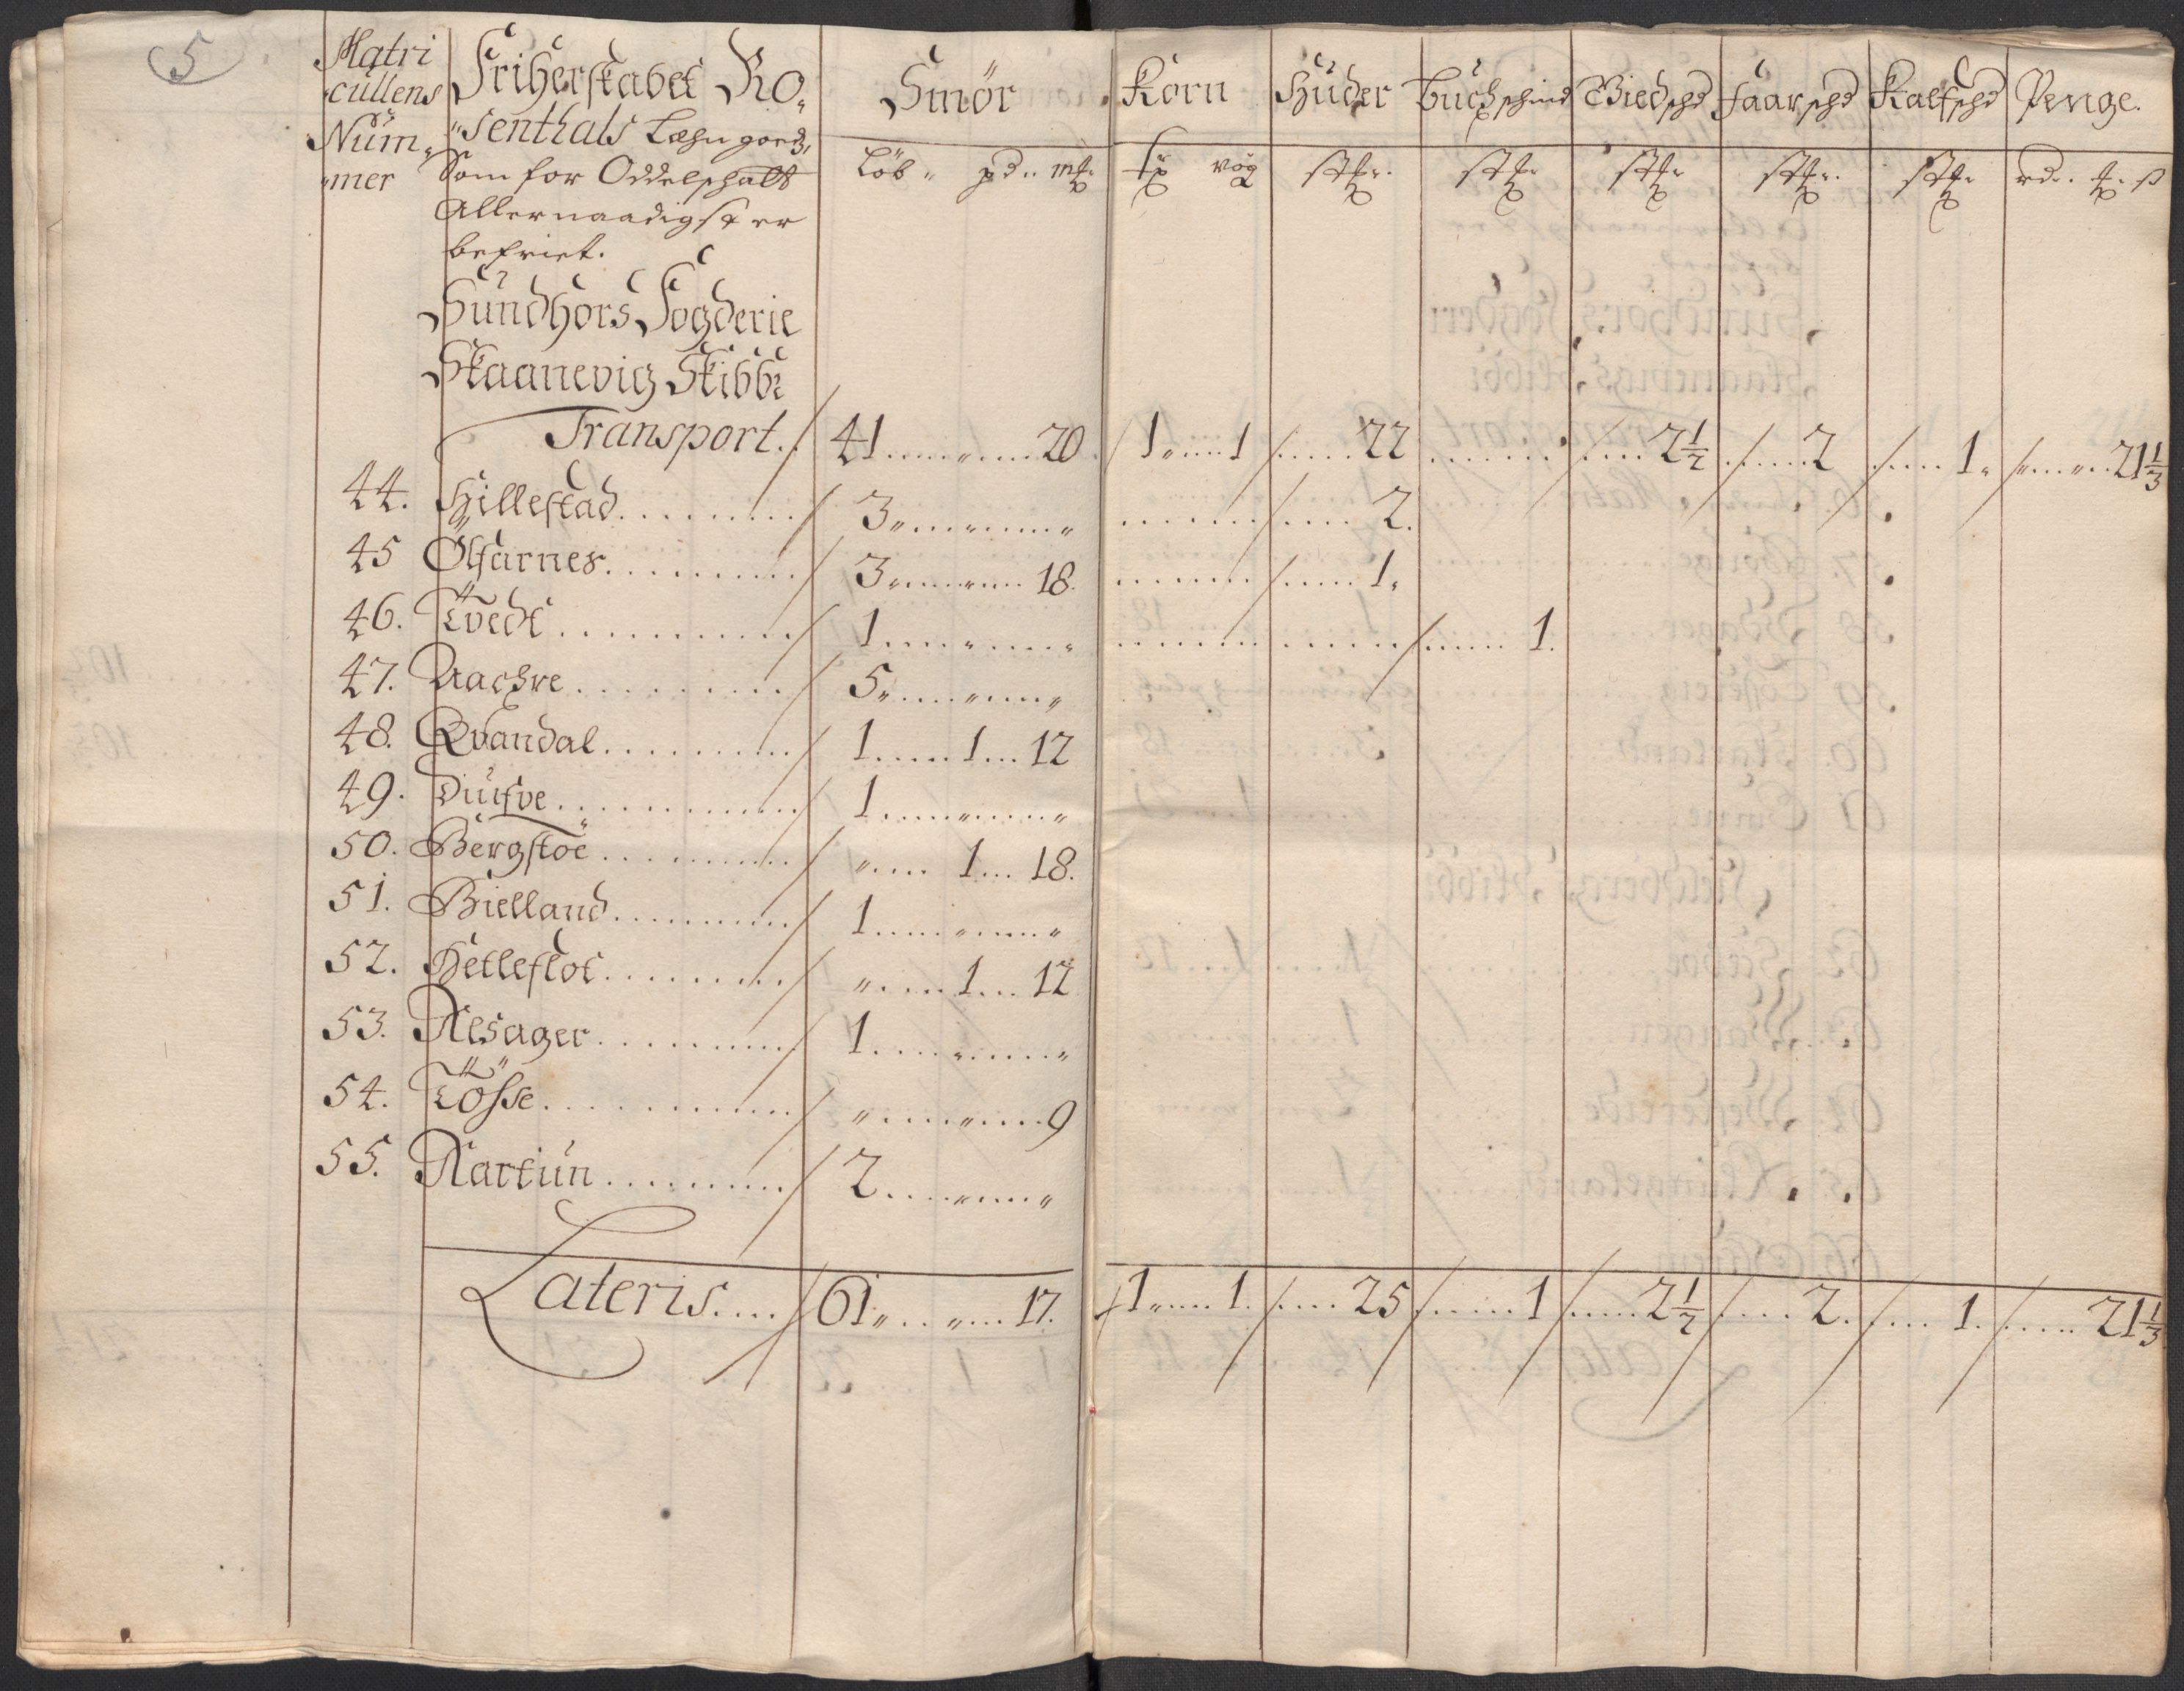 5
Matri
cullens
Num-
mer
Friherskabet Ro-
senthals Læhn goedz,
Som for Oddelschatt
Allernaadigst er
befriet.
Sundhors Fogderie
Skaanevig Skibbr
Smör Korn Huder Buchschind Giedschd Faarschd Kalfschd Penge.
Löb. pd. mk. tr vög stk. stk. stk. stk. stk. rd. ß
Transport. 41 " 20 1 1 22 2½ 2 1 21⅓
44. Hillestad 3 " " 2.
45 Ølfarnes 3 " 18. 1
46. Tvedt 1 " " 1.
47. Aachre 5 " "
48. Qvandal 1 1 12
49. Diufve 1 " "
50. Bergstöe " 1 18.
51. Bielland 1 " "
52. Hetleflot " 1 12
53. Alsager 1 " "
54. Tösse " " 9
55. Nartun 2 " "
Lateris 61 " 17. 1 1. 25 1 2½ 2. 1. 21⅓